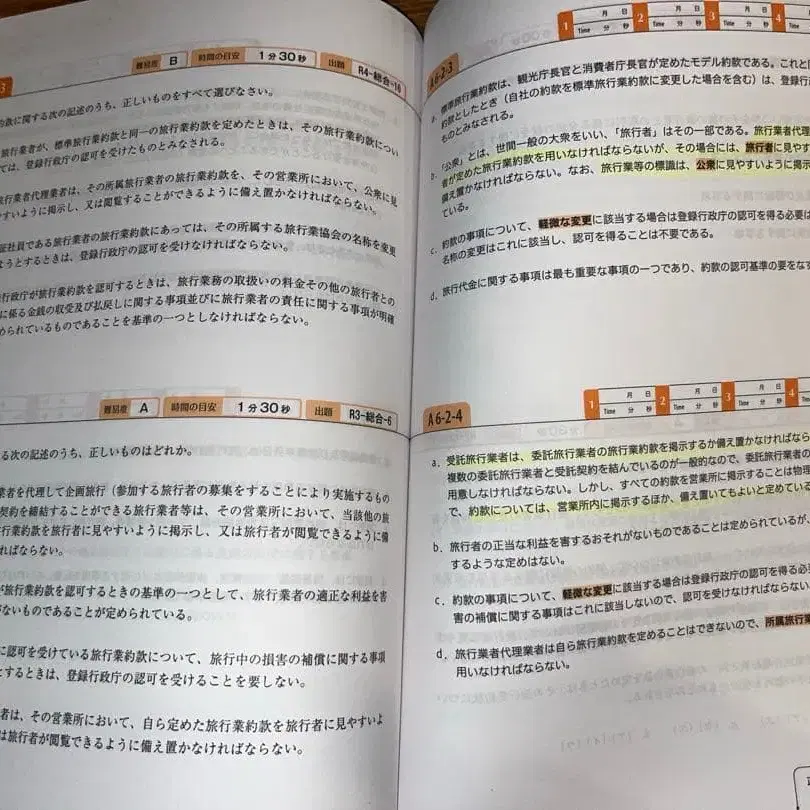 3
難易度 B 時間の目安 1分30秒 出題 R4-総合-16
約款に関する次の記述のうち、正しいものをすべて選びなさい。
旅行業者が、標準旅行業約款と同一の旅行業約款を定めたときは、その旅行業約款につい
ては、登録行政庁の認可を受けたものとみなされる。
行業者代理業者は、その所属旅行業者の旅行業約款を、その営業所において、公衆に見
やすいように掲示し、又は閲覧することができるように備え置かなければならない。
証社員である旅行業者の旅行業約款にあっては、その所属する旅行業協会の名称を変更
ようとするときは、登録行政庁の認可を受けなければならない。
行政庁が旅行業約款を認可するときは、旅行業務の取扱いの料金その他の旅行者との
に係る金銭の収受及び払戻しに関する事項並びに旅行業者の責任に関する事項が明確
められているものであることを基準の一つとしなければならない。
難易度 A 時間の目安 1分30秒 出題 R3-総合-6
る次の記述のうち、正しいものはどれか。
業者を代理して企画旅行(参加する旅行者の募集をすることにより実施するもの
契約を締結することができる旅行業者等は、その営業所において、当該他の旅
行業約款を旅行者に見やすいように掲示し、又は旅行者が閲覧できるように備
ればならない。
が旅行業約款を認可するときの基準の一つとして、旅行業者の適正な利益を害
がないものであることが定められている。
に認可を受けている旅行業約款について、旅行中の損害の補償に関する事項
とするときは、登録行政庁の認可を受けることを要しない。
者は、その営業所において、自ら定めた旅行業約款を旅行者に見やすいよ
は旅行者が閲覧できるように備え置かなければならない。
A6-2-3
1 月 日 Time 分 秒 2 月 日 Time 分 秒 3 月 日 Time 分 秒 4
a. 標準旅行業約款は、観光庁長官と消費者庁長官が定めたモデル約款である。これと同
約款としたとき(自社の約款を標準旅行業約款に変更した場合を含む)は、登録行
ものとみなされる。
b. 「公衆」とは、世間一般の大衆をいい、「旅行者」はその一部である。旅行業者代理
者が定めた旅行業約款を用いなければならないが、その場合には、旅行者に見やす
備え置かなければならない。なお、旅行業等の標識は、公衆に見やすいように掲示
ている。
c. 約款の事項について、軽微な変更に該当する場合は登録行政庁の認可を得る必要は
名称の変更はこれに該当し、認可を得ることは不要である。
d. 旅行代金に関する事項は最も重要な事項の一つであり、約款の認可基準の要をなす
A6-2-4
1 月 日 Time 分 秒 2 月 日 Time 分 秒 3 月 日 Time 分 秒 4 Time
a. 受託旅行業者は、委託旅行業者の旅行業約款を掲示するか備え置かなければなら
複数の委託旅行業者と受託契約を結んでいるのが一般的なので、委託旅行業者の
用意しなければならない。しかし、すべての約款を営業所に掲示することは物理
で、約款については、営業所内に掲示するほか、備え置いてもよいと定めている
b. 旅行者の正当な利益を害するおそれがないものであることは定められているが、
するような定めはない。
c. 約款の事項について、軽微な変更に該当する場合は登録行政庁の認可を得る必
害の補償に関する事項はこれに該当しないので、認可を受けなければならない
d. 旅行業者代理業者は自ら旅行業約款を定めることはできないので、所属旅行業
用いなければならない。